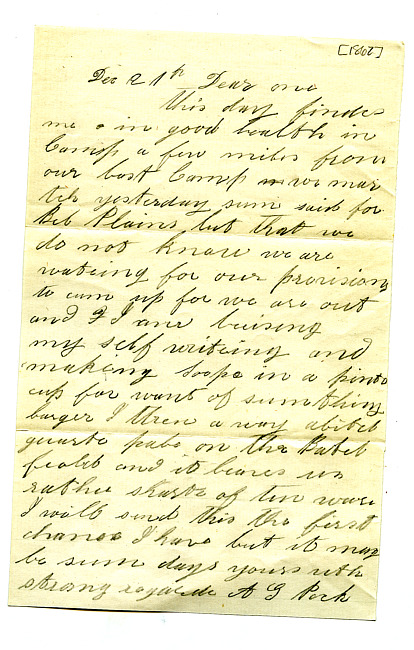 [1862]
Dec 21th Dear one
this day findes
me in good health in
Camp a few miles from
our last Camp we mar
tch yesterday sum said for
Plains but that we
do not know we are
wateing for our provision
to cum up for we are out
and I am buising
my self writeing and
makeing soope in a pinte
cup for want of sumthing
larger I threw a way a
quarte on the Batel
fealt and it leaves us
rathe skarse of tin ware
I will send this the first
chance I have but it may
be sum days yours with
strong A G Park